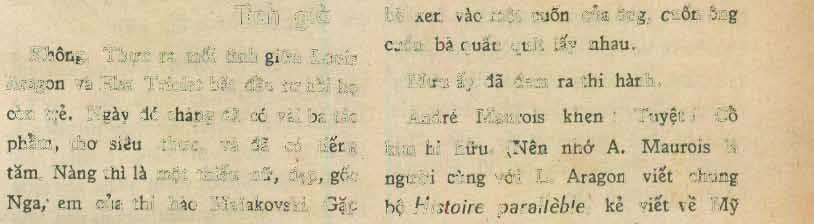 Tình già
Không. Thực ra mối tình giữa Louis
Aragon và Elsa Triolet bắt đầu từ hồi họ
còn trẻ. Ngày đó chàng đã có vài ba tác
phẩm, thơ siêu thực, và đã có tiếng
tăm. Nàng thì là một thiếu nữ, đẹp, gốc
Nga, em của thi hào Maiakovski. Gặp
bà xen vào một cuốn của ông, cuốn ông
cuốn bà quấn quít lấy nhau.
Mưu ấy đã đem ra thi hành.
André Maurois khen : Tuyệt ! Cổ
kim hi hữu. (Nên nhớ A. Maurois là
người cùng với L. Aragon viết chung
bộ Histoire parallèble, kẻ viết về Mỹ